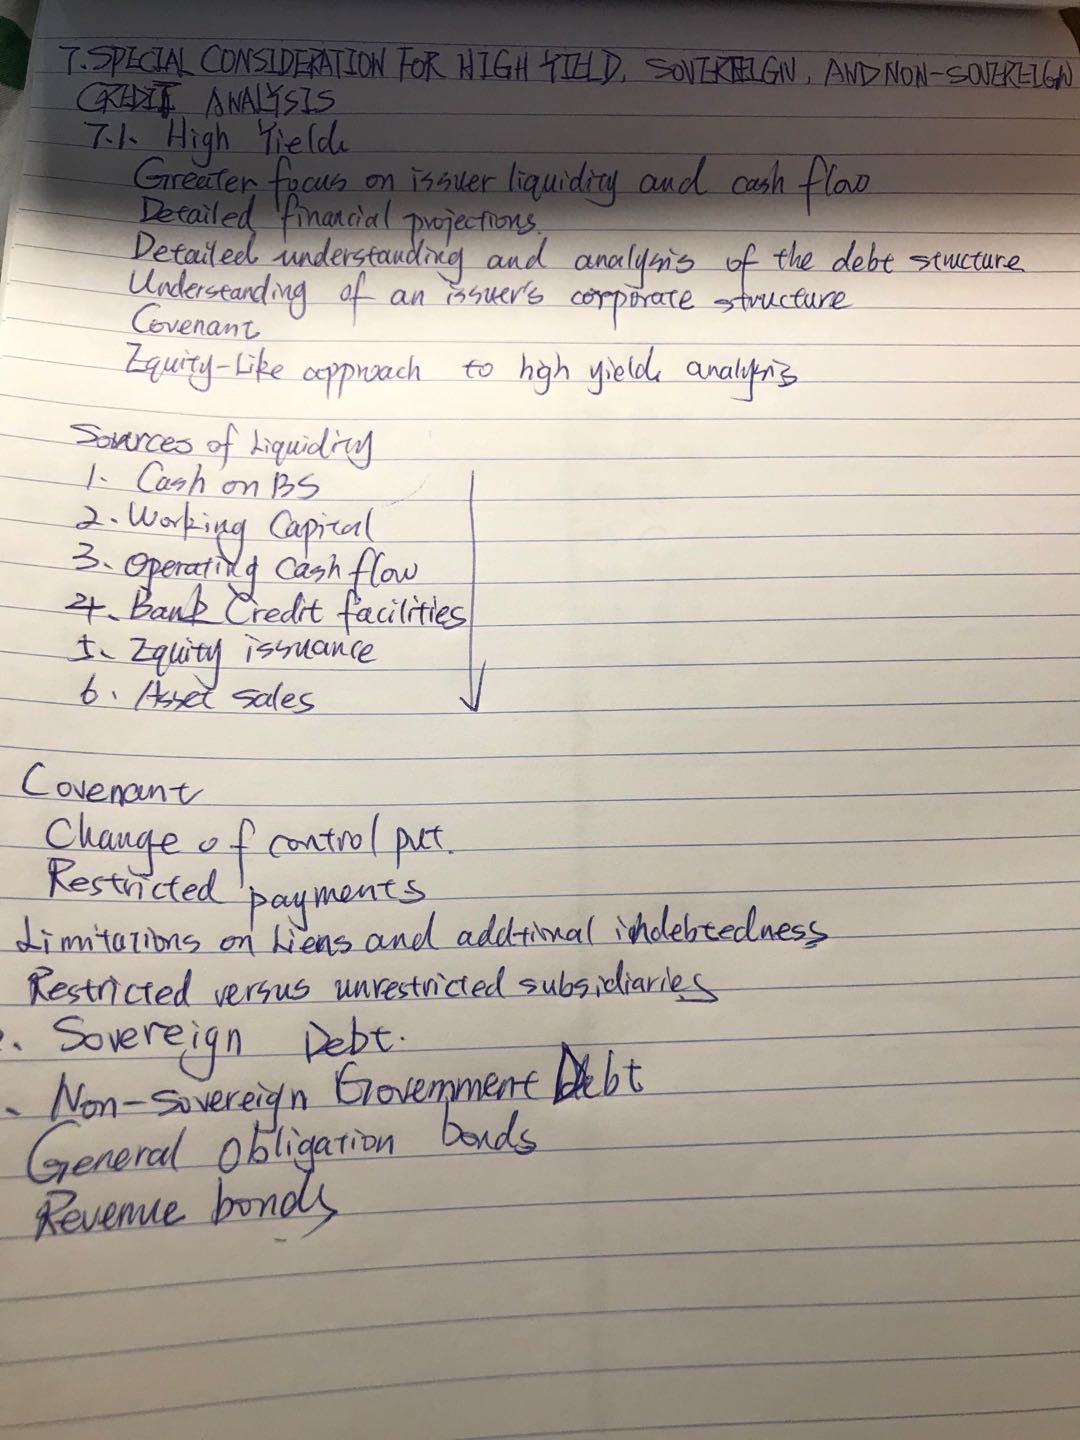 7. SPECIAL CONSIDERATION FOR HIGH YIELD, SOVEREIGN, AND NON-SOVEREIGN
CREDIT ANALYSIS
7.1. High Yield
Greater focus on issuer liquidity and cash flow
Detailed financial projections.
Detailed understanding and analysis of the debt structure
Understanding of an issuer's corporate structure
Covenant
Equity-Like approach to high yield analysis
Sources of Liquidity
1. Cash on BS
2. Working Capital
3. Operating Cash flow
4. Bank Credit facilities
5. Equity issuance
6. Asset sales
Covenant
Change of control put.
Restricted payments
Limitations on Liens and addtional indebtedness
Restricted versus unrestricted subsidiaries
. Sovereign Debt.
. Non-sovereign Government Debt
General Obligation bonds
Revenue bonds